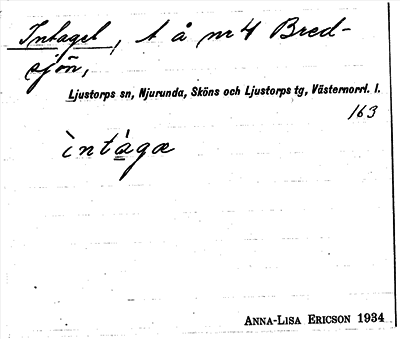 Intaget, t å nr 4 Bred-
sjön,
Ljustorps sn, Njurunda, Sköns och Ljustorps tg, Västernorrl. l.
163
ìntàgæ
ANNA-LISA ERICSON 1934